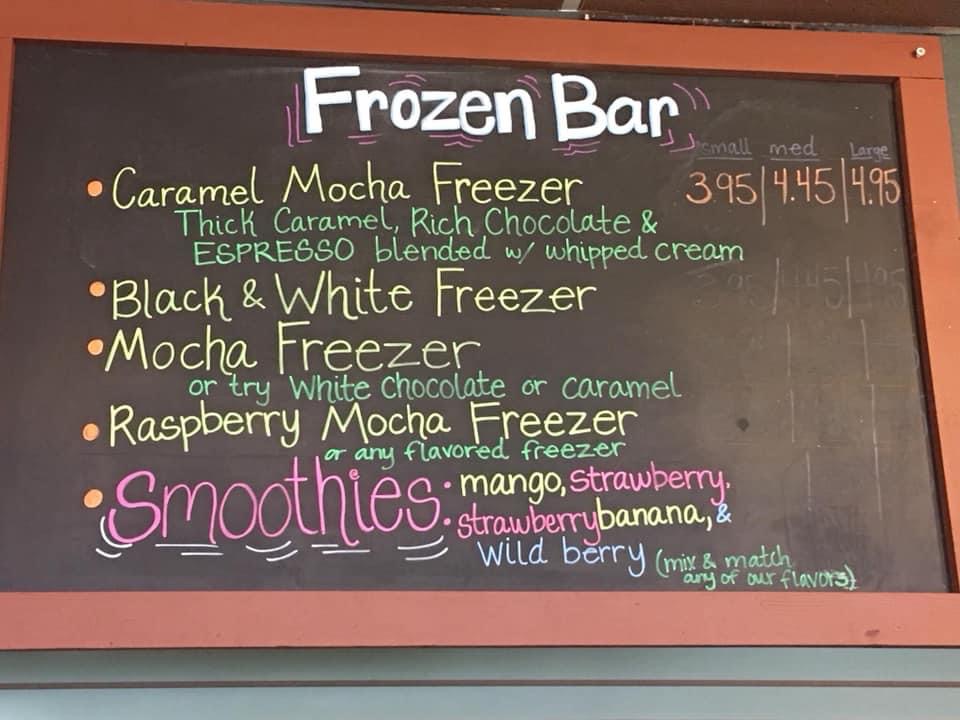 Frozen Bar
small med Large
• Caramel Mocha Freezer 3.95 | 4.45 | 4.95
Thick Caramel, Rich Chocolate &
ESPRESSO blended w/ whipped cream
• Black & White Freezer 3.95 | 4.45 | 4.95
• Mocha Freezer
or try White Chocolate or caramel
• Raspberry Mocha Freezer
or any flavored freezer
• Smoothies: mango, strawberry,
strawberry banana, &
wild berry (mix & match
any of our flavors)